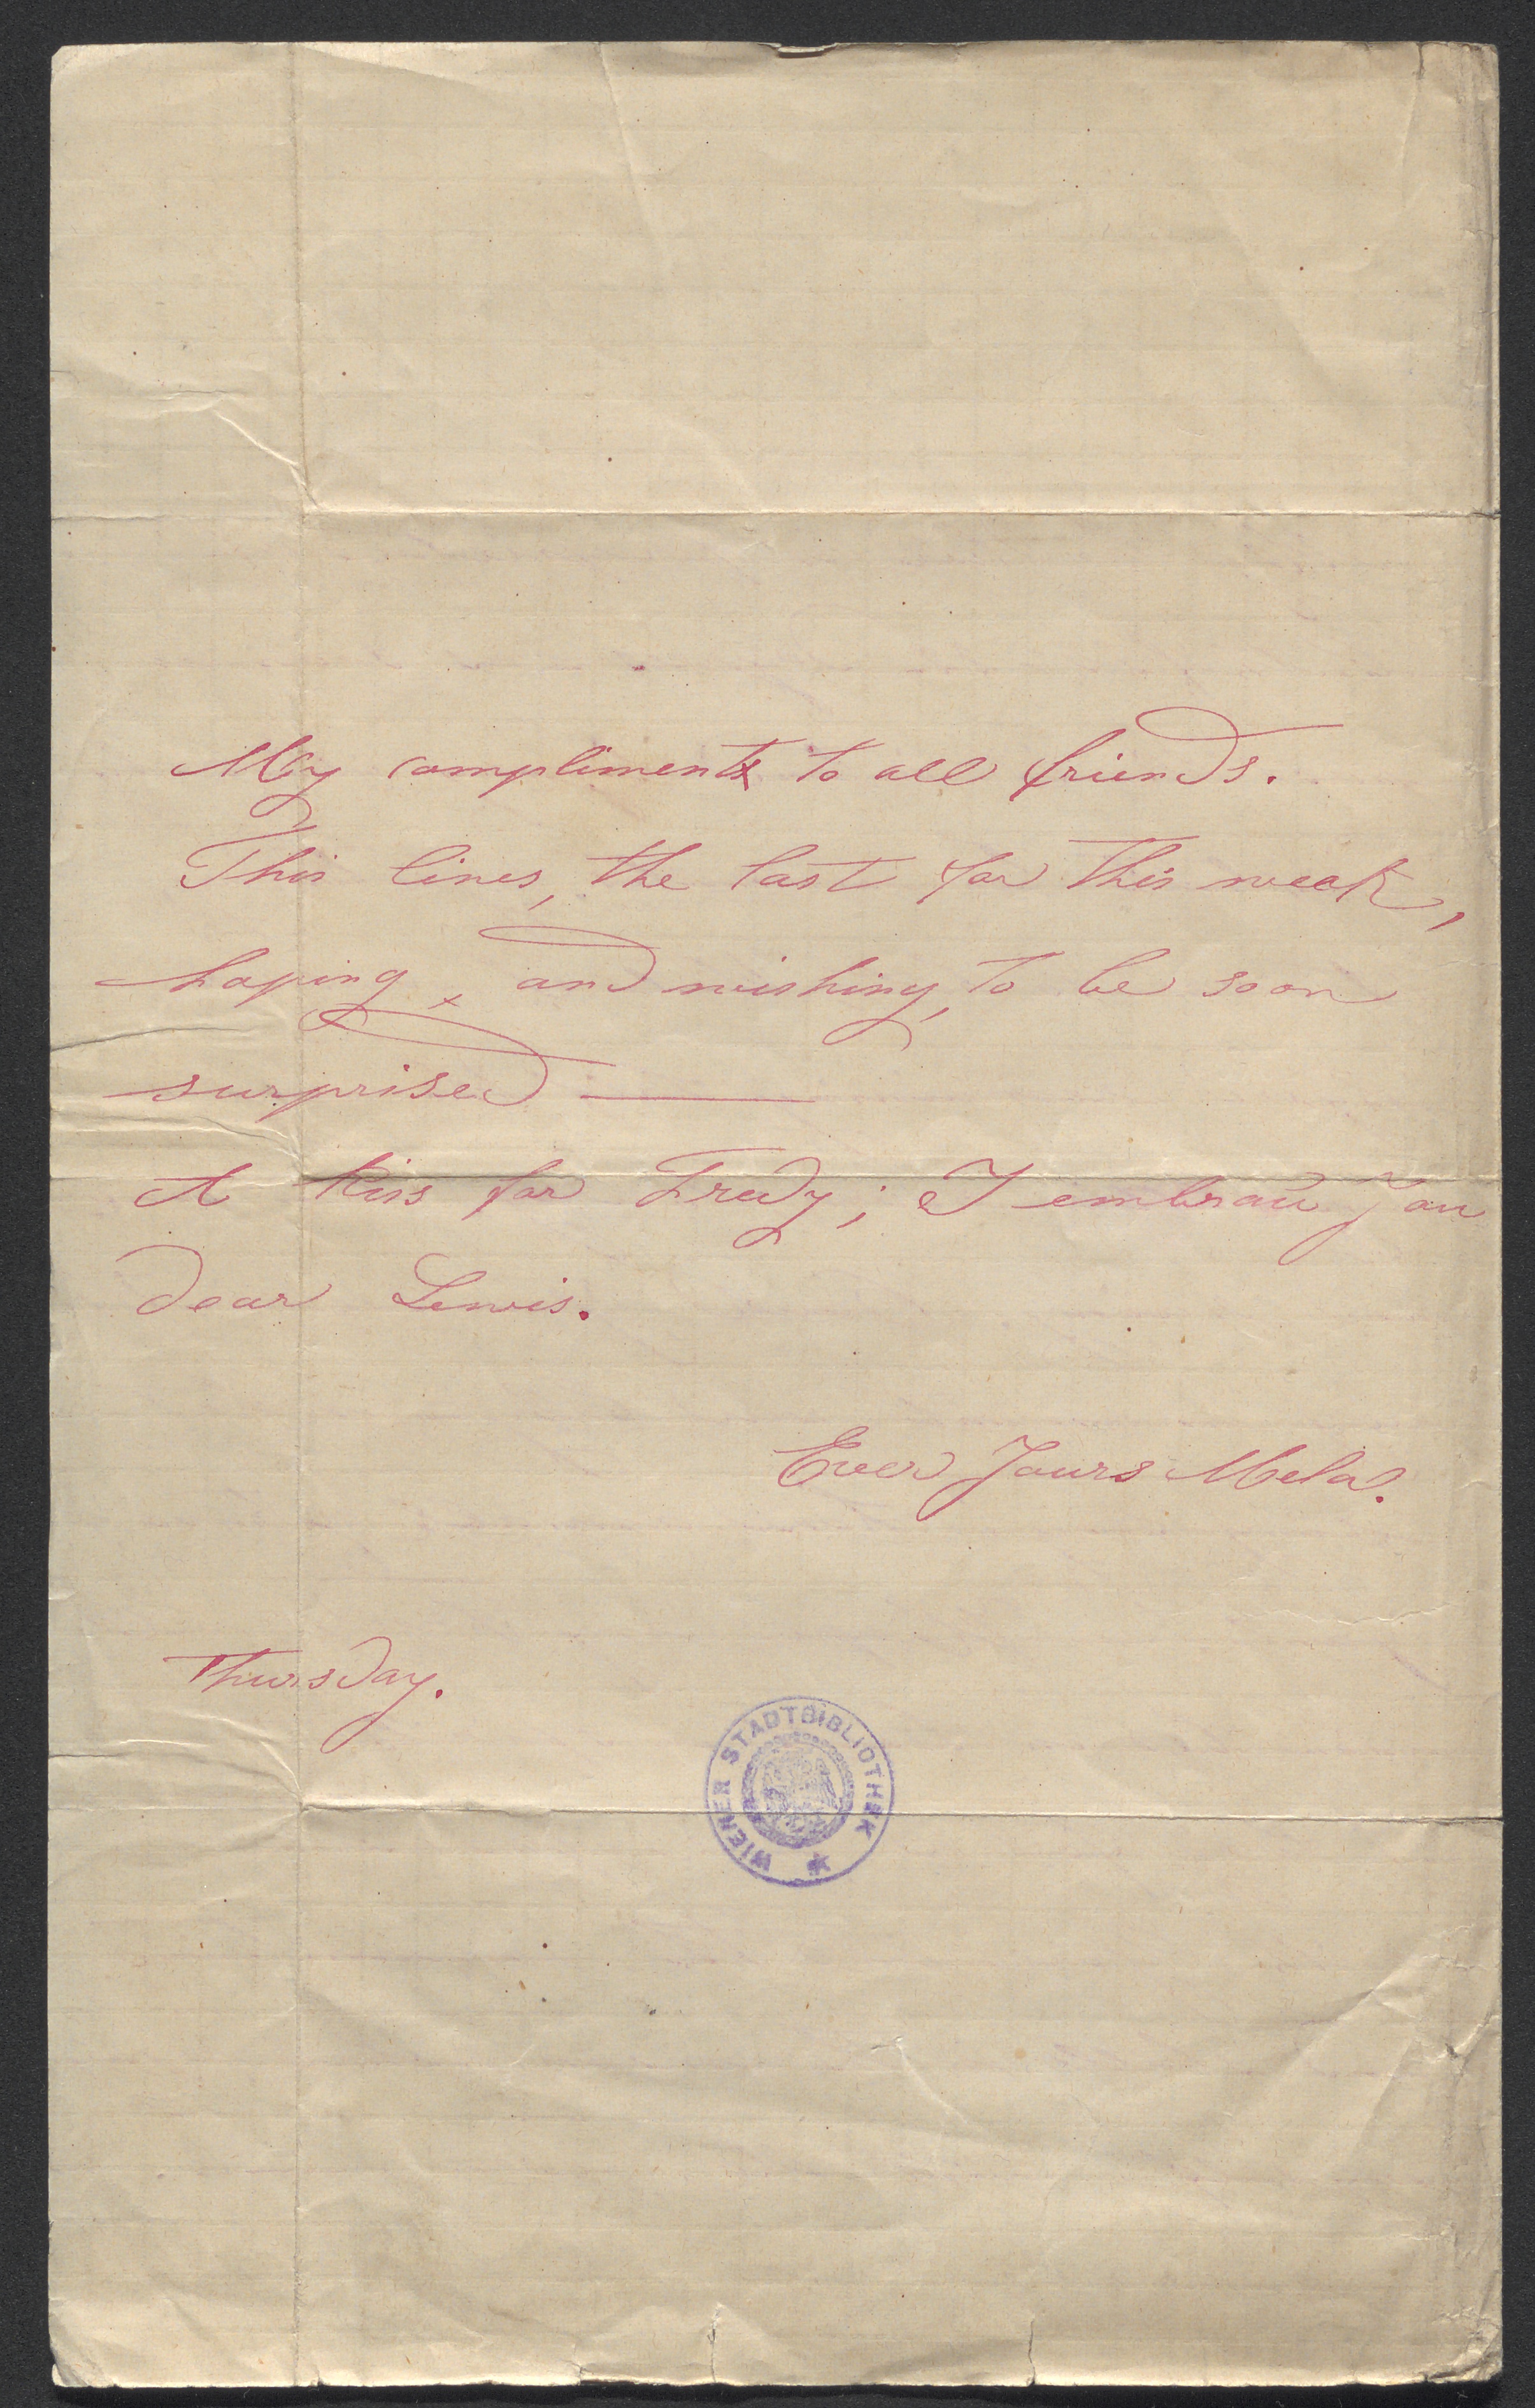 My compliments to all friends.
This lines, the last for this weak,
hoping, and wishing, to be soon
surprised —
A kiss for Fredy; I embrace You
dear Lewis.
Ever Yours Mela.
Thursday.
WIENER STADTBIBLIOTHEK